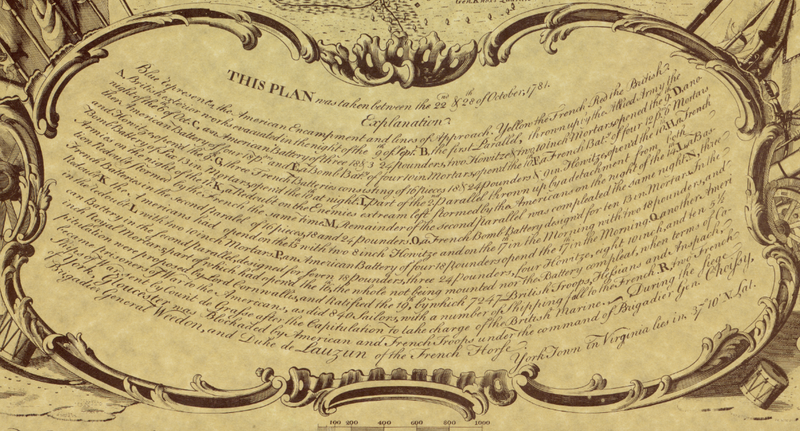 Gen. Knox
THIS PLAN was taken between the 22nd & 28th of October, 1781.
Explanation.
Blue represents the American Encampment and lines of Approach, Yellow the French, Red the British.
A. British exterior works evacuated in the night of the 29 of Sept. B. the first Parallel, thrown up by the Allied Army the
night of the 6 of Oct. C. an American Battery of three 18 & 3 24 pounders, two Howitz & two 10 inch Mortars, opend the 9. D. ano-
ther American Battery of four 18 prs. and E. a Bomb Baty. of four 10 in Mortars, opend the 10. F. a French Baty. of four 12 prs. 6 Mortars
and Howitz opend the 9. G. three French Batteries consisting of 16 pieces 18 & 24 pounders & 9 in Howitz opend the 10. H. a French
Bomb Battery of 13 in Mortars, opend the at night. I. Part of the 2d Parallel thrown up by a detachment from both
Armies on the night of the 11. K. a Redoubt on the Enemies extream left stormed by the Americans on the night of the 14. L. a Bas-
tion Redoubt stormed by the French at the same time. M. Remainder of the second parallel was compleated the same night. N. three
French Batteries in the second Parallel of 16 pieces, 18 and 24 pounders. O. a French Bomb Battery designed for ten 13 in Mortars. In the
Redoubt K. the Americans had opend on the 15 with two 8 inch Howitz and on the 17 in the Morning with two 18 pounders, and
in the redoubt L. with two 10 inch Mortars. P. an American Battery of four 18 Pounders opend the 17 in the Morning. Q. another Amen
Battery in the second parallel, designed for seven 18 pounders, three 24 pounders, four Howitz, eight 10 inch, and ten 5½
inch Royal Mortars, part of which had opend the 16, the whole not being mounted nor the Battery compleat, when terms of Ca-
pitulation were proposed by Lord Cornwallis, and Ratified the 19, by which 7247 British Troops, Hessians and Anspachs
became prisoners of War to the Americans, as did 840 Sailors, with a number of Shipping fall to the French. R. two French
Ships of Line sent by Count de Grasse after the Capitulation to take charge of the British Marine. During the siege
of York, Gloucester was Blockaded by American and French Troops under the command of Brigadier Gen. Choissy,
Brigadier General Weedon, and Duke de Lauzun of the French Horse.
York Town in Virginia lies in 37° 10' N. Lat.
100 200 400 600 800 1000